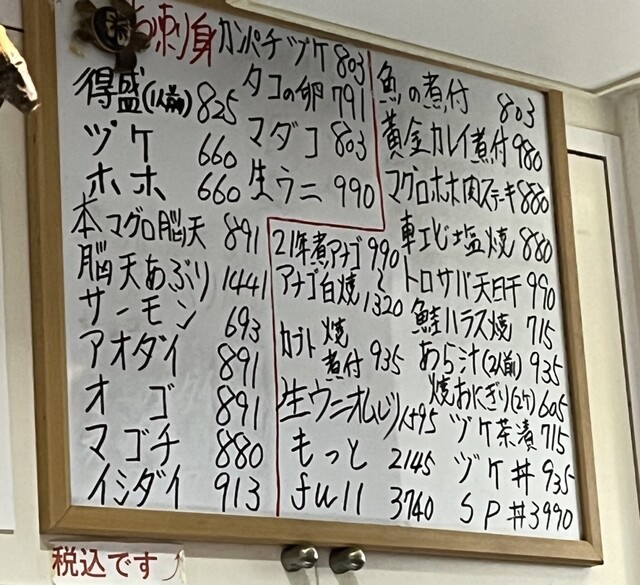 お刺り身
得盛(1人前) 825
ヅケ 660
ホホ 660
本マグロ脳天 891
脳天あぶり 1441
サーモン 693
アオダイ 891
オゴ 891
マゴチ 880
イシダイ 913
カンパチヅケ 803
タコの卵 791
マダコ 803
生ウニ 990
21年煮アナゴ 990
アナゴ白焼 〜1320
カブト 焼 煮付 935
生ウニオムレツハーフ1195
もっと 2145
full 3740
魚の煮付 803
黄金カレイ煮付 980
マグロホホ肉ステーキ 880
車エビ塩焼 880
トロサバ天日干 990
鮭ハラス焼 715
あら汁(2人前) 935
焼おにぎり(2ケ) 605
ヅケ茶漬 715
ヅケ丼 935
SP丼 3990
税込です